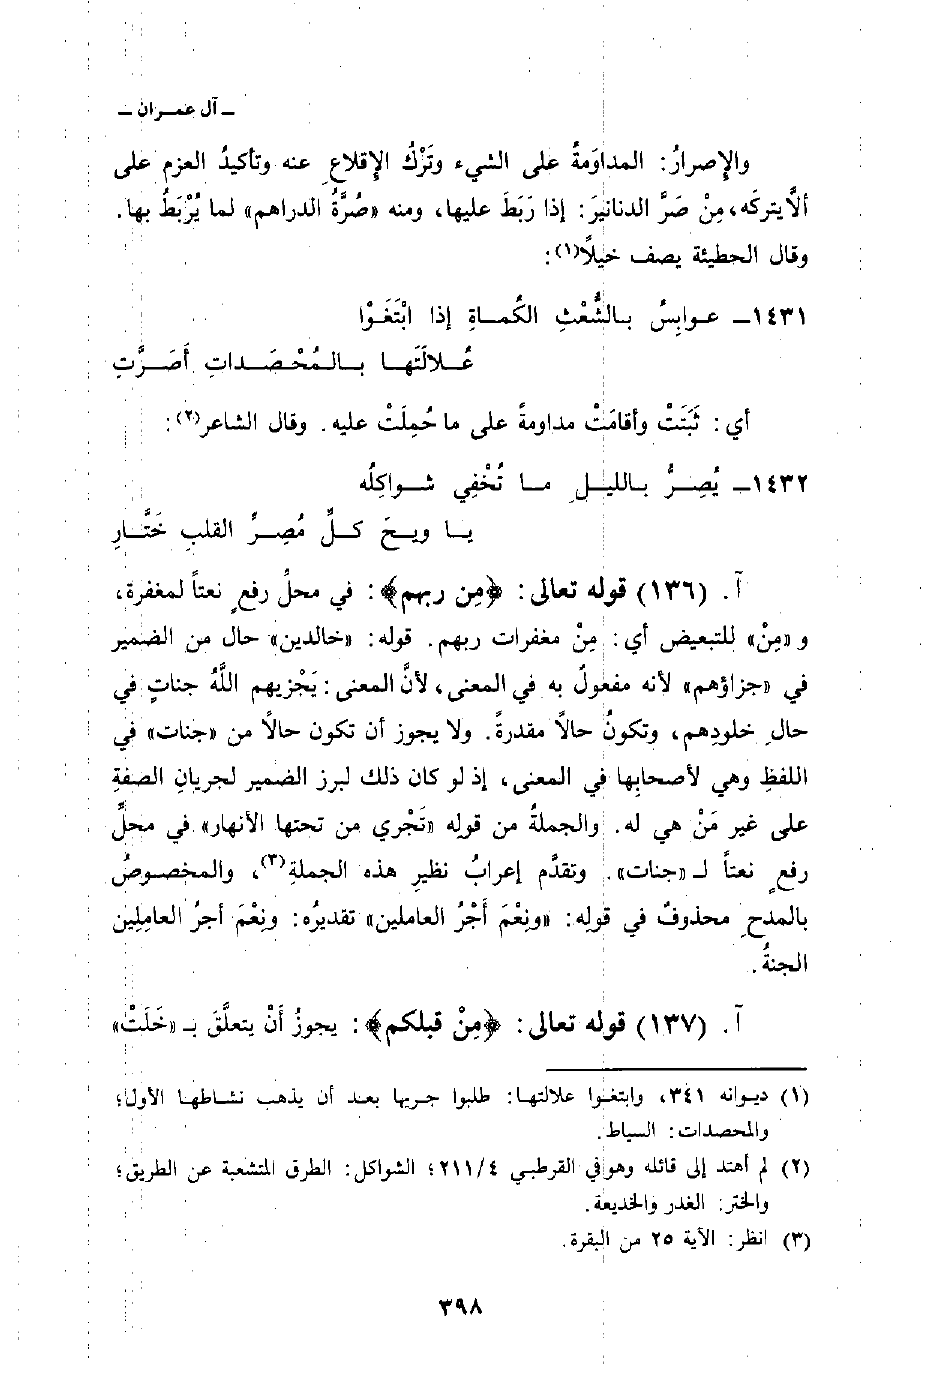 ـ آل عمـران ـ
والإِصرارُ: المداوَمةُ على الشيء وتَرْكُ الإِقلاعِ عنه وتأكيدُ العزم على
ألاَّ يتركَه، مِنْ صَرَّ الدنانيرَ: إذا رَبَطَ عليها، ومنه «صُرَّةُ الدراهم» لما يُرْبَطُ بها.
وقال الحطيئة يصف خيلاً(١):
١٤٣١ـ عـوابِسُ بـالشُّعْثِ الكُمـاةِ إذا ابْتَغَـوْا
عُـلالَتَهـا بـالـمُحْـصَـداتِ أَصَـرَّتِ
أي: ثَبَتَتْ وأقامَتْ مداومةً على ما حُمِلَتْ عليه. وقال الشاعر(٢):
١٤٣٢ـ يُصِـرُّ بـالليـلِ مـا تُخْفِي شـواكِلُه
يـا ويـحَ كـلِّ مُصِـرِّ القلبِ خَتَّـارِ
آ. (١٣٦) قوله تعالى: ﴿مِن ربهم﴾: في محلِّ رفعٍ نعتاً لمغفرة،
و «مِنْ» للتبعيض أي: مِنْ مغفرات ربهم. قوله: «خالدين» حال من الضمير
في «جزاؤهم» لأنه مفعولٌ به في المعنى، لأنَّ المعنى: يَجْزيهم اللَّهُ جناتٍ في
حالِ خلودِهم، وتكونُ حالاً مقدرةً. ولا يجوز أن تكون حالاً من «جنات» في
اللفظِ وهي لأصحابِها في المعنى، إذ لو كان ذلك لبرز الضمير لجريانِ الصفةِ
على غير مَنْ هي له. والجملةُ من قوله «تَجْري من تحتها الأنهار» في محلِّ
رفعٍ نعتاً لـ «جنات». وتقدَّم إعرابُ نظيرِ هذه الجملةِ(٣)، والمخصوصُ
بالمدحِ محذوفٌ في قوله: «ونِعْمَ أَجْرُ العاملين» تقديرُه: ونِعْمَ أجرُ العامِلِين
الجنةُ.
آ. (١٣٧) قوله تعالى: ﴿مِنْ قبلكم﴾: يجوزُ أَنْ يتعلَّقَ بـ «خَلَتْ»
(١) ديـوانه ٣٤١، وابتغـوا علالتهـا: طلبوا جـريها بعـد أن يذهب نشـاطهـا الأول؛
والمحصدات: السياط.
(٢) لم أهتد إلى قائله وهو في القرطبـي ٢١١/٤؛ الشواكل: الطرق المتشعبة عن الطريق؛
والختر: الغدر والخديعة.
(٣) انظر: الآية ٢٥ من البقرة.
٣٩٨